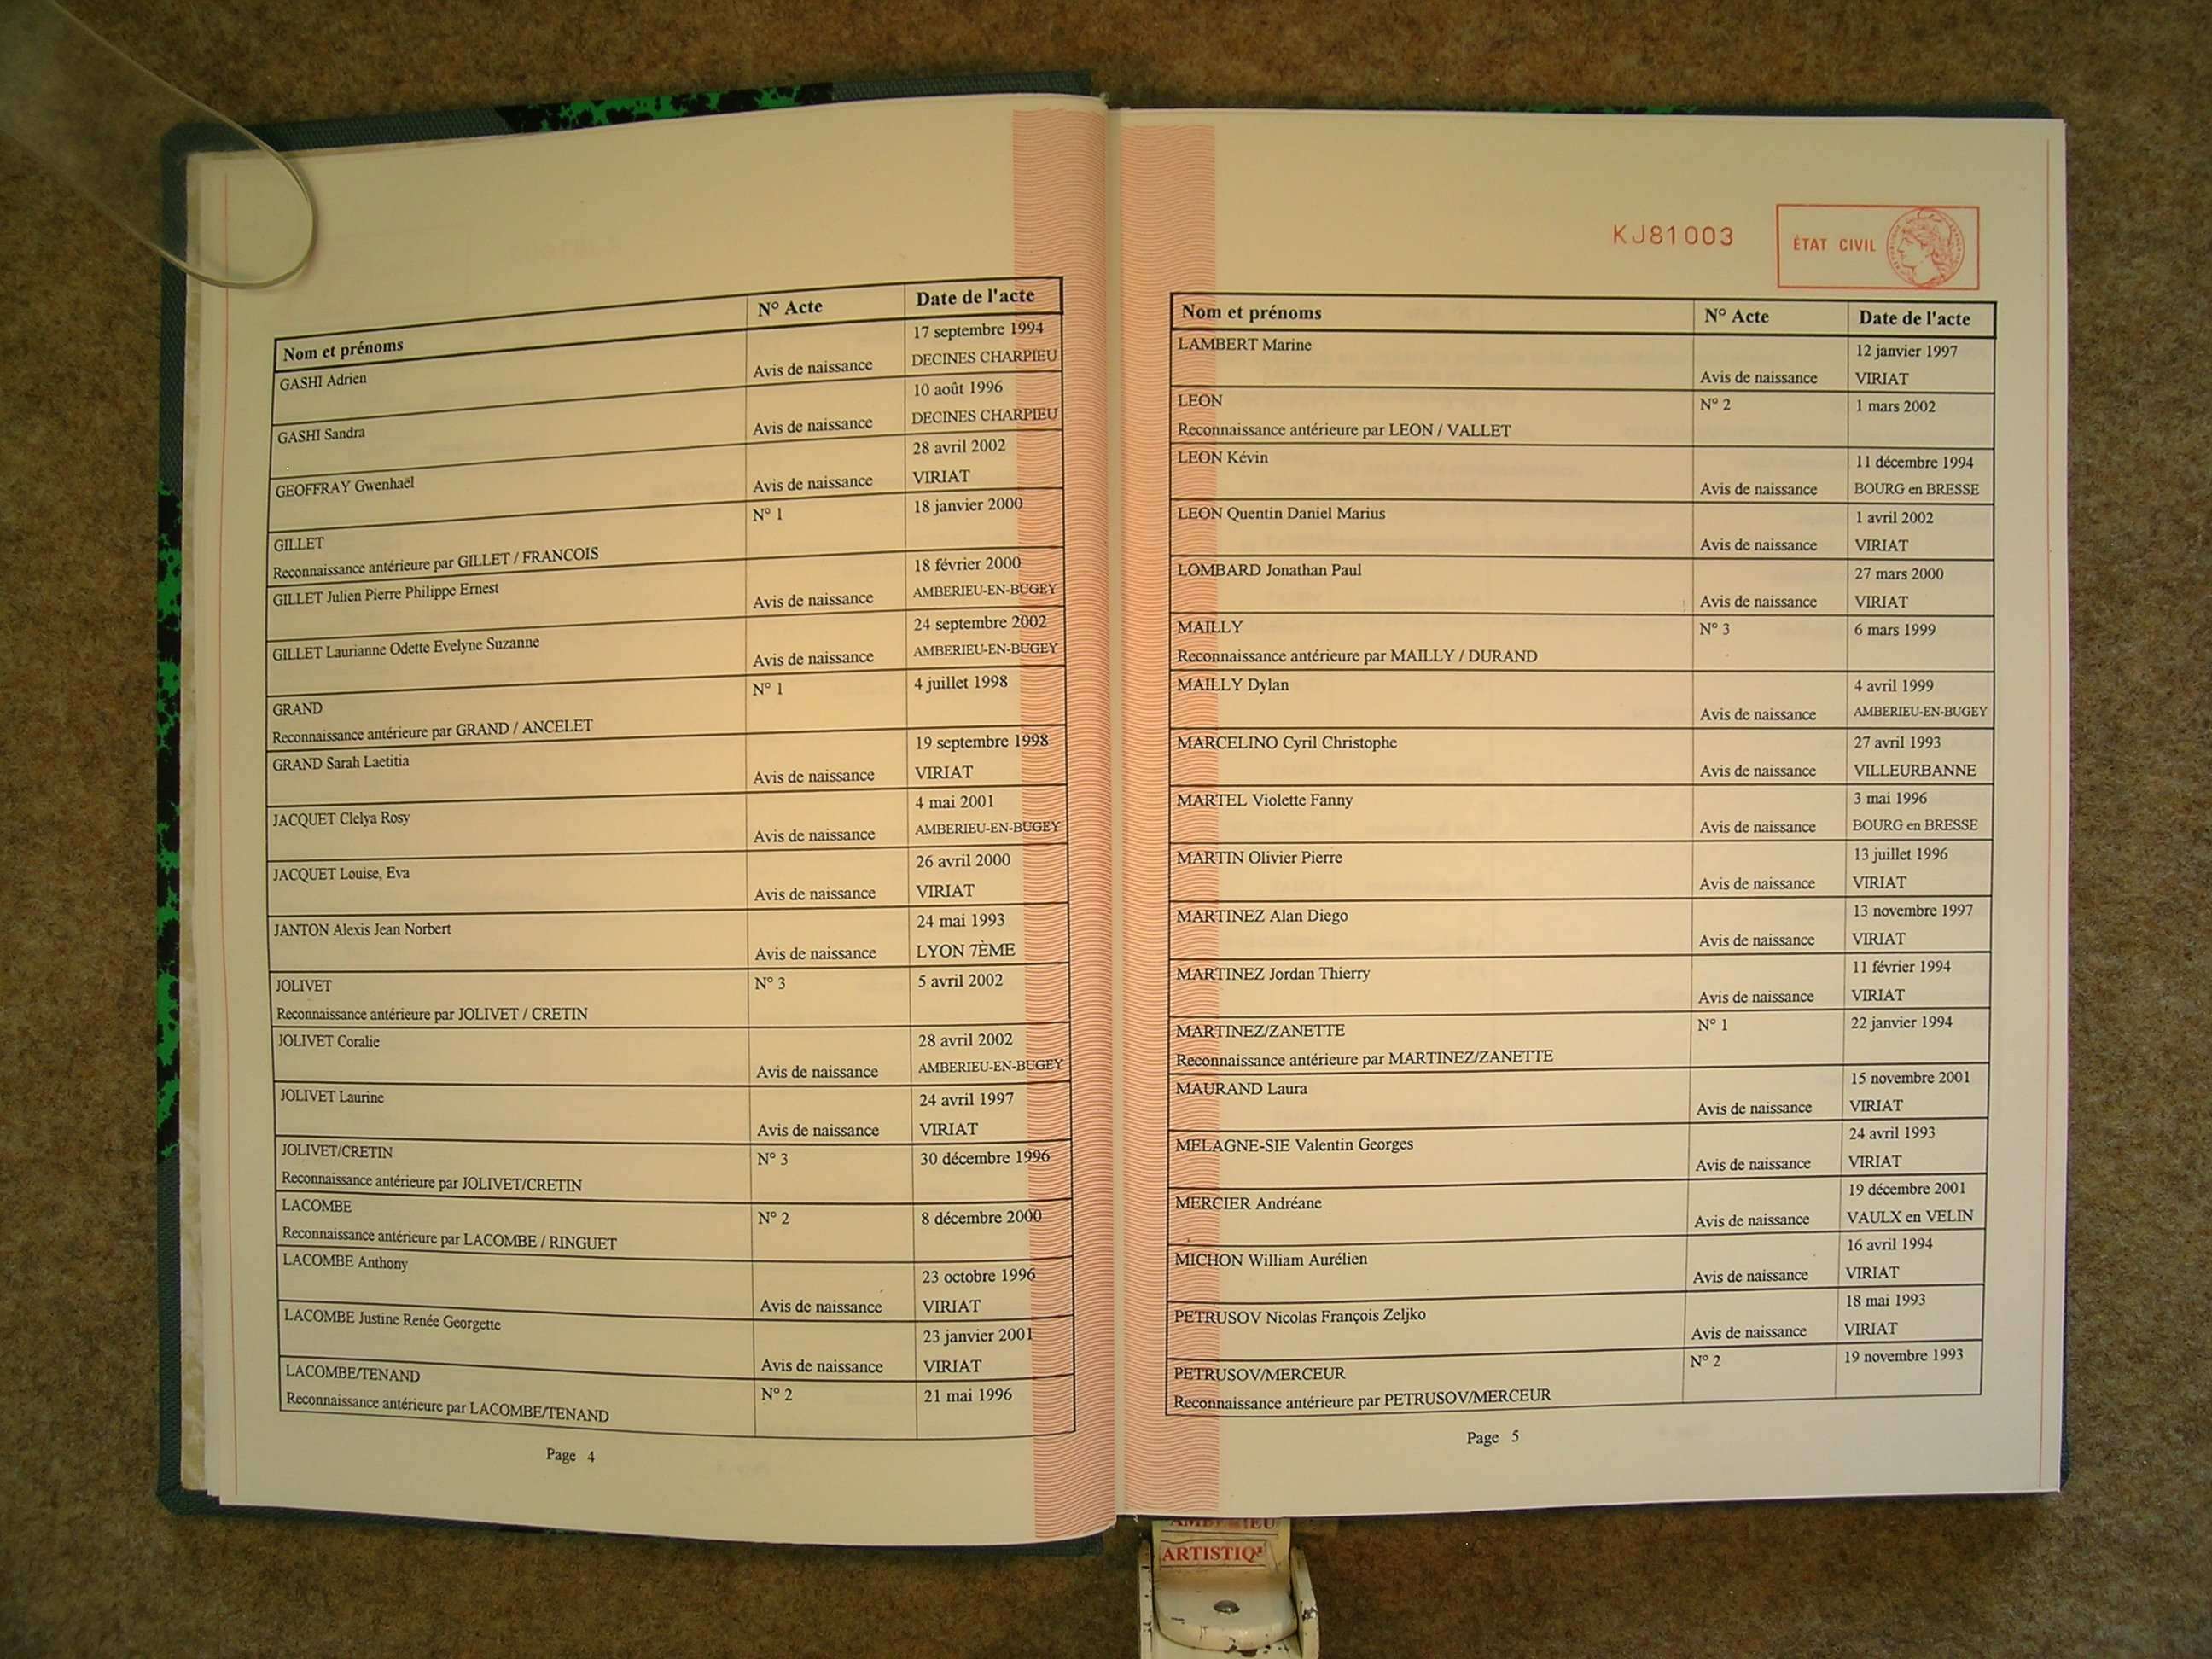 Nom et prénoms N° Acte Date de l'acte
GASHI Adrien Avis de naissance 17 septembre 1994
DECINES CHARPIEU
GASHI Sandra Avis de naissance 10 août 1996
DECINES CHARPIEU
GEOFFRAY Gwenhaël Avis de naissance 28 avril 2002
VIRIAT
GILLET N° 1 18 janvier 2000
Reconnaissance antérieure par GILLET / FRANCOIS
GILLET Julien Pierre Philippe Ernest Avis de naissance 18 février 2000
AMBERIEU-EN-BUGEY
GILLET Laurianne Odette Evelyne Suzanne Avis de naissance 24 septembre 2002
AMBERIEU-EN-BUGEY
GRAND N° 1 4 juillet 1998
Reconnaissance antérieure par GRAND / ANCELET
GRAND Sarah Laetitia Avis de naissance 19 septembre 1998
VIRIAT
JACQUET Clelya Rosy Avis de naissance 4 mai 2001
AMBERIEU-EN-BUGEY
JACQUET Louise, Eva Avis de naissance 26 avril 2000
VIRIAT
JANTON Alexis Jean Norbert Avis de naissance 24 mai 1993
LYON 7ÈME
JOLIVET N° 3 5 avril 2002
Reconnaissance antérieure par JOLIVET / CRETIN
JOLIVET Coralie Avis de naissance 28 avril 2002
AMBERIEU-EN-BUGEY
JOLIVET Laurine Avis de naissance 24 avril 1997
VIRIAT
JOLIVET/CRETIN N° 3 30 décembre 1996
Reconnaissance antérieure par JOLIVET/CRETIN
LACOMBE N° 2 8 décembre 2000
Reconnaissance antérieure par LACOMBE / RINGUET
LACOMBE Anthony Avis de naissance 23 octobre 1996
VIRIAT
LACOMBE Justine Renée Georgette Avis de naissance 23 janvier 2001
VIRIAT
LACOMBE/TENAND N° 2 21 mai 1996
Reconnaissance antérieure par LACOMBE/TENAND
Page 4
KJ81003 ÉTAT CIVIL
Nom et prénoms N° Acte Date de l'acte
LAMBERT Marine 12 janvier 1997
Avis de naissance VIRIAT
LEON N° 2 1 mars 2002
Reconnaissance antérieure par LEON / VALLET
LEON Kévin 11 décembre 1994
Avis de naissance BOURG en BRESSE
LEON Quentin Daniel Marius 1 avril 2002
Avis de naissance VIRIAT
LOMBARD Jonathan Paul 27 mars 2000
Avis de naissance VIRIAT
MAILLY N° 3 6 mars 1999
Reconnaissance antérieure par MAILLY / DURAND
MAILLY Dylan 4 avril 1999
Avis de naissance AMBERIEU-EN-BUGEY
MARCELINO Cyril Christophe 27 avril 1993
Avis de naissance VILLEURBANNE
MARTEL Violette Fanny 3 mai 1996
Avis de naissance BOURG en BRESSE
MARTIN Olivier Pierre 13 juillet 1996
Avis de naissance VIRIAT
MARTINEZ Alan Diego 13 novembre 1997
Avis de naissance VIRIAT
MARTINEZ Jordan Thierry 11 février 1994
Avis de naissance VIRIAT
MARTINEZ/ZANETTE N° 1 22 janvier 1994
Reconnaissance antérieure par MARTINEZ/ZANETTE
MAURAND Laura 15 novembre 2001
Avis de naissance VIRIAT
MELAGNE-SIE Valentin Georges 24 avril 1993
Avis de naissance VIRIAT
MERCIER Andréane 19 décembre 2001
Avis de naissance VAULX en VELIN
MICHON William Aurélien 16 avril 1994
Avis de naissance VIRIAT
PETRUSOV Nicolas François Zeljko 18 mai 1993
Avis de naissance VIRIAT
PETRUSOV/MERCEUR N° 2 19 novembre 1993
Reconnaissance antérieure par PETRUSOV/MERCEUR
Page 5